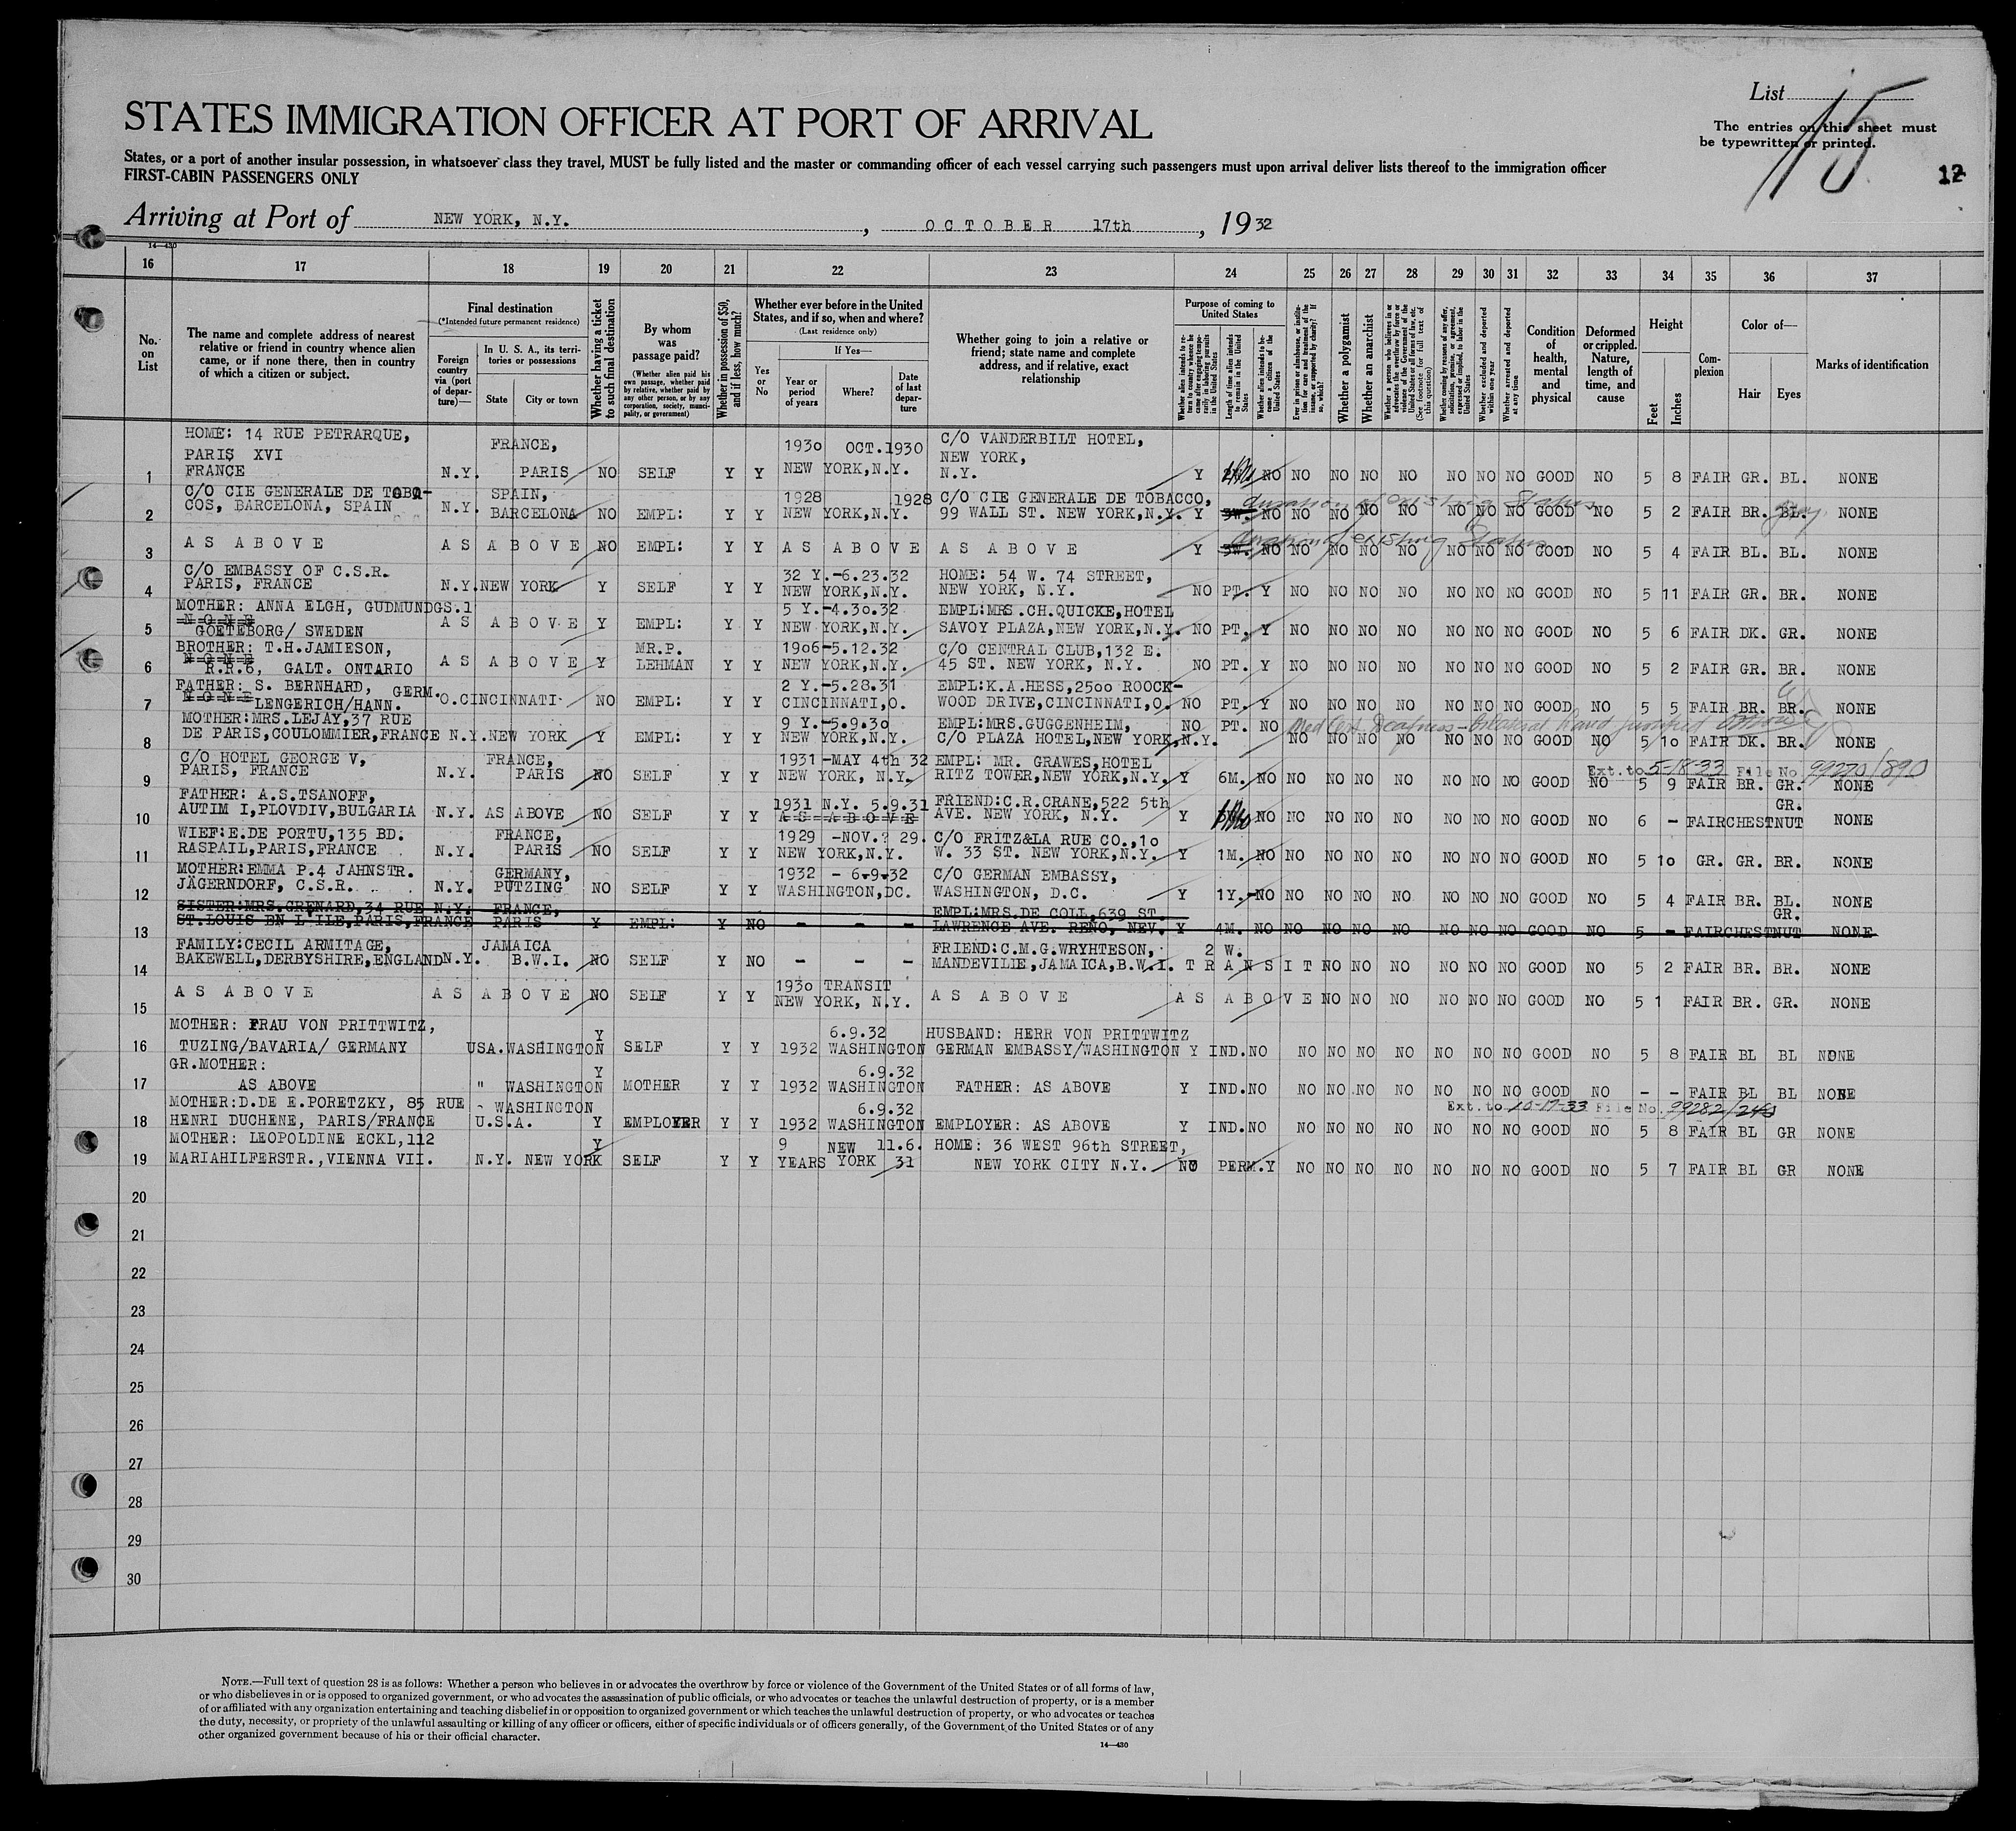 List 15
The entries on this sheet must
be typewritten or printed.
12
STATES IMMIGRATION OFFICER AT PORT OF ARRIVAL
States, or a port of another insular possession, in whatsoever class they travel, MUST be fully listed and the master or commanding officer of each vessel carrying such passengers must upon arrival deliver lists thereof to the immigration officer
FIRST-CABIN PASSENGERS ONLY
Arriving at Port of NEW YORK, N.Y. , OCTOBER 17th , 1932
14—430
16 17 18 19 20 21 22 23 24 25 26 27 28 29 30 31 32 33 34 35 36 37
No. on List
The name and complete address of nearest relative or friend in country whence alien came, or if none there, then in country of which a citizen or subject.
Final destination
(*Intended future permanent residence)
Foreign country via (port of departure)—
In U. S. A., its territories or possessions
State
City or town
Whether having a ticket to such final destination
By whom was passage paid?
(Whether alien paid his own passage, whether paid by relative, whether paid by any other person, or by any corporation, society, municipality, or government)
Whether in possession of $50, and if less, how much?
Whether ever before in the United States, and if so, when and where?
(Last residence only)
Yes or No
If Yes—
Year or period of years
Where?
Date of last departure
Whether going to join a relative or friend; state name and complete address, and if relative, exact relationship
Purpose of coming to United States
Length of time alien intends to remain in the United States
Whether alien intends to become a citizen of the United States
Whether a polygamist
Whether an anarchist
Whether excluded and deported within one year
Whether arrested and deported at any time
Condition of health, mental and physical
Deformed or crippled. Nature, length of time, and cause
Height
Feet
Inches
Complexion
Color of—
Hair
Eyes
Marks of identification
HOME: 14 RUE PETRARQUE, FRANCE, 1930 OCT.1930 C/O VANDERBILT HOTEL,
PARIS XVI NEW YORK,
1 FRANCE N.Y. PARIS NO SELF Y Y NEW YORK,N.Y. N.Y. Y NO NO NO NO NO NO NO NO GOOD NO 5 8 FAIR GR. BL. NONE
C/O CIE GENERALE DE TOBA- SPAIN, 1928 1928 C/O CIE GENERALE DE TOBACCO, duration of existing Status
2 COS, BARCELONA, SPAIN N.Y. BARCELONA NO EMPL: Y Y NEW YORK,N.Y. 99 WALL ST. NEW YORK,N.Y. Y 3W. NO NO NO NO NO NO NO NO GOOD NO 5 2 FAIR BR. BL. gray NONE
duration of existing Status
3 AS ABOVE AS ABOVE NO EMPL: Y Y AS ABOVE AS ABOVE Y 3W. NO NO NO NO NO NO NO NO GOOD NO 5 4 FAIR BL. BL. NONE
C/O EMBASSY OF C.S.R. 32 Y.-6.23.32 HOME: 54 W. 74 STREET,
4 PARIS, FRANCE N.Y.NEW YORK Y SELF Y Y NEW YORK,N.Y. NEW YORK, N.Y. NO PT. Y NO NO NO NO NO NO NO GOOD NO 5 11 FAIR GR. BR. NONE
MOTHER: ANNA ELGH, GUDMUNDGS.1 5 Y.-4.30.32 EMPL:MRS.CH.QUICKE,HOTEL
NONE
5 GOETEBORG/ SWEDEN AS ABOVE Y EMPL: Y Y NEW YORK,N.Y. SAVOY PLAZA,NEW YORK,N.Y. NO PT. Y NO NO NO NO NO NO NO GOOD NO 5 6 FAIR DK. GR. NONE
BROTHER: T.H.JAMIESON, MR.P. 1906-5.12.32 C/O CENTRAL CLUB,132 E.
NONE
6 R.R.6, GALT. ONTARIO AS ABOVE Y LEHMAN Y Y NEW YORK,N.Y. 45 ST. NEW YORK, N.Y. NO PT. Y NO NO NO NO NO NO NO GOOD NO 5 2 FAIR GR. BR. NONE
FATHER: S. BERNHARD, GERM. 2 Y.-5.28.31 EMPL:K.A.HESS,2500 ROOCK-
7 NONE LENGERICH/HANN. O.CINCINNATI NO EMPL: Y Y CINCINNATI,O. WOOD DRIVE,CINCINNATI,O. NO PT. Y NO NO NO NO NO NO NO GOOD NO 5 5 FAIR BR. BR. NONE
MOTHER:MRS.LEJAY,37 RUE 9 Y.-5.9.30 EMPL:MRS.GUGGENHEIM, NO PT. NO Med Cert Deafness - bilateral
8 DE PARIS,COULOMMIER,FRANCE N.Y.NEW YORK Y EMPL: Y Y NEW YORK,N.Y. C/O PLAZA HOTEL,NEW YORK,N.Y. NO NO NO NO NO NO NO GOOD NO 5 10 FAIR DK. BR. NONE
C/O HOTEL GEORGE V, FRANCE, 1931 -MAY 4th 32 EMPL: MR. GRAWES,HOTEL Ext.to 5-18-33 File No. 99270/890
9 PARIS, FRANCE N.Y. PARIS NO SELF Y Y NEW YORK, N.Y. RITZ TOWER,NEW YORK,N.Y. Y 6M. NO NO NO NO NO NO NO NO GOOD NO 5 9 FAIR BR. GR. NONE
FATHER: A.S.TSANOFF, 1931 N.Y. 5.9.31 FRIEND:C.R.CRANE,522 5th GR.
10 AUTIM I,PLOVDIV,BULGARIA N.Y. AS ABOVE NO SELF Y Y AS ABOVE AVE. NEW YORK, N.Y. Y NO NO NO NO NO NO NO NO GOOD NO 6 - FAIR CHESTNUT NONE
WIEF:E.DE PORTU,135 BD. FRANCE, 1929 -NOV.? 29. C/O FRITZ&LA RUE CO.,10
11 RASPAIL,PARIS,FRANCE N.Y. PARIS NO SELF Y Y NEW YORK,N.Y. W. 33 ST. NEW YORK,N.Y. Y 1M. NO NO NO NO NO NO NO NO GOOD NO 5 10 GR. GR. BR. NONE
MOTHER:EMMA P.4 JAHNSTR. GERMANY, 1932 - 6.9.32 C/O GERMAN EMBASSY,
12 JÄGERNDORF, C.S.R. N.Y. PUTZING NO SELF Y Y WASHINGTON,DC. WASHINGTON, D.C. Y 1Y. NO NO NO NO NO NO NO NO GOOD NO 5 4 FAIR BR. BL. NONE
SISTER:MRS.GRENARD,34 RUE N.Y. FRANCE, EMPL:MRS.DE COLL,639 ST. GR.
13 ST.LOUIS EN L'ILE,PARIS,FRANCE PARIS Y EMPL: Y NO - - - LAWRENCE AVE. RENO, NEV. Y 4M. NO NO NO NO NO NO NO NO GOOD NO 5 - FAIR CHESTNUT NONE
FAMILY:CECIL ARMITAGE, JAMAICA FRIEND:C.M.G.WRYHTESON, 2 W.
14 BAKEWELL,DERBYSHIRE,ENGLAND N.Y. B.W.I. NO SELF Y NO - - - MANDEVILIE,JAMAICA,B.W.I. TRANSIT NO NO NO NO NO NO GOOD NO 5 2 FAIR BR. BR. NONE
1930 TRANSIT
15 AS ABOVE AS ABOVE NO SELF Y Y NEW YORK, N.Y. AS ABOVE AS ABOVE NO NO NO NO NO NO GOOD NO 5 1 FAIR BR. GR. NONE
MOTHER: FRAU VON PRITTWITZ, Y 6.9.32 HUSBAND: HERR VON PRITTWITZ
16 TUZING/BAVARIA/ GERMANY USA.WASHINGTON SELF Y Y 1932 WASHINGTON GERMAN EMBASSY/WASHINGTON Y IND.NO NO NO NO NO NO NO NO GOOD NO 5 8 FAIR BL BL NONE
GR.MOTHER: Y 6.9.32
17 AS ABOVE " WASHINGTON MOTHER Y Y 1932 WASHINGTON FATHER: AS ABOVE Y IND.NO NO NO NO NO NO NO NO GOOD NO - - FAIR BL BL NONE
MOTHER:D.DE E.PORETZKY, 85 RUE WASHINGTON 6.9.32 Ext.to 10-17-33 File No. 99282/246
18 HENRI DUCHENE, PARIS/FRANCE U.S.A. Y EMPLOYER Y Y 1932 WASHINGTON EMPLOYER: AS ABOVE Y IND.NO NO NO NO NO NO NO NO GOOD NO 5 8 FAIR BL GR NONE
MOTHER: LEOPOLDINE ECKL,112 Y 9 NEW 11.6. HOME: 36 WEST 96th STREET,
19 MARIAHILFERSTR.,VIENNA VII. N.Y. NEW YORK SELF Y Y YEARS YORK 31 NEW YORK CITY N.Y. NO PERM.Y NO NO NO NO NO NO NO GOOD NO 5 7 FAIR BL GR NONE
20
21
22
23
24
25
26
27
28
29
30
NOTE.—Full text of question 28 is as follows: Whether a person who believes in or advocates the overthrow by force or violence of the Government of the United States or of all forms of law,
or who disbelieves in or is opposed to organized government, or who advocates the assassination of public officials, or who advocates or teaches the unlawful destruction of property, or is a member
of or affiliated with any organization entertaining and teaching disbelief in or opposition to organized government or which teaches the unlawful destruction of property, or who advocates or teaches
the duty, necessity, or propriety of the unlawful assaulting or killing of any officer or officers, either of specific individuals or of officers generally, of the Government of the United States or of any
other organized government because of his or their official character.
14—430